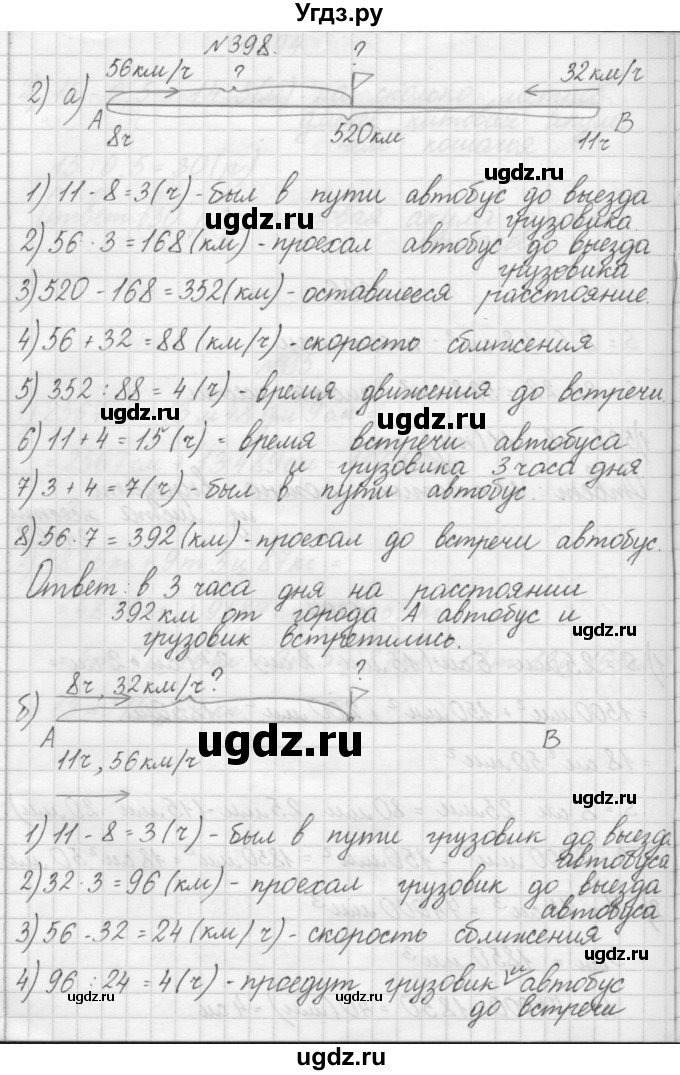 Угдз.ру
№398.
56км/ч ? ? 32км/ч
2) а)
А В
8ч 520км 11ч
ugdz.ru
1) 11 - 8 = 3 (ч) - был в пути автобус до выезда
грузовика.
ugdz.ru
2) 56 · 3 = 168 (км) - проехал автобус до выезда
грузовика
3) 520 - 168 = 352 (км) - оставшееся расстояние.
4) 56 + 32 = 88 (км/ч) - скорость сближения
ugdz.ru
5) 352 : 88 = 4 (ч) - время движения до встречи.
ugdz.ru
ugdz.ru
6) 11 + 4 = 15 (ч) = время встречи автобуса
и грузовика 3 часа дня
7) 3 + 4 = 7 (ч) - был в пути автобус.
8) 56 · 7 = 392 (км) - проехал до встречи автобус.
Ответ: в 3 часа дня на расстоянии
392 км от города А автобус и
ugdz.ru
грузовик встретились.
8ч, 32км/ч? ?
б)
А В
ugdz.ru
11ч, 56км/ч
1) 11 - 8 = 3 (ч) - был в пути грузовик до выезда
автобуса
2) 32 · 3 = 96 (км) - проехал грузовик до выезда
автобуса
3) 56 - 32 = 24 (км/ч) - скорость сближения
4) 96 : 24 = 4 (ч) - проедут грузовик и автобус
ugdz.ru
до встречи
ugdz.ru
ugdz.ru